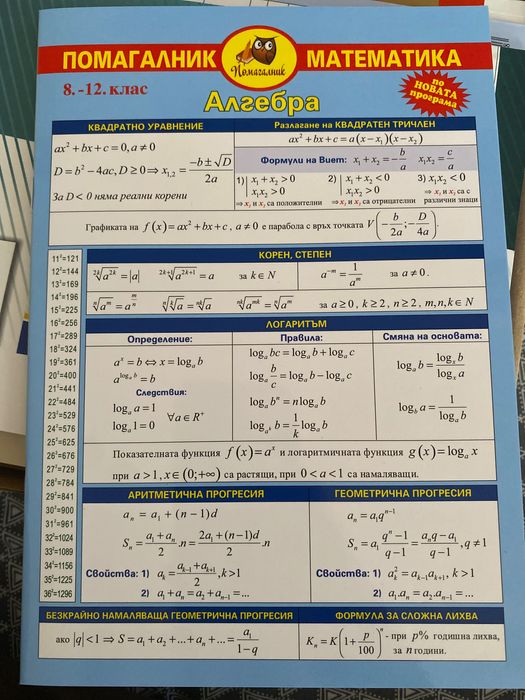 ПОМАГАЛНИК
Помагалник
МАТЕМАТИКА
8. -12. клас
Алгебра
по НОВАТА програма
КВАДРАТНО УРАВНЕНИЕ
ax² + bx + c = 0, a ≠ 0
D = b² − 4ac, D ≥ 0 ⇒ x₁,₂ = (−b ± √D)/2a
За D < 0 няма реални корени
Разлагане на КВАДРАТЕН ТРИЧЛЕН
ax² + bx + c = a(x − x₁)(x − x₂)
Формули на Виет: x₁ + x₂ = −b/a x₁x₂ = c/a
1) x₁ + x₂ > 0 2) x₁ + x₂ < 0 3) x₁x₂ < 0
x₁x₂ > 0 x₁x₂ > 0 ⇒ x₁ и x₂ са с
⇒ x₁ и x₂ са положителни ⇒ x₁ и x₂ са отрицателни различни знаци
Графиката на f(x) = ax² + bx + c, a ≠ 0 е парабола с връх точката V(−b/2a; −D/4a).
11²=121
12²=144
13²=169
14²=196
15²=225
16²=256
17²=289
18²=324
19²=361
20²=400
21²=441
22²=484
23²=529
24²=576
25²=625
26²=676
27²=729
28²=784
29²=841
30²=900
31²=961
32²=1024
33²=1089
34²=1156
35²=1225
36²=1296
КОРЕН, СТЕПЕН
²ᵏ√a²ᵏ = |a| ²ᵏ⁺¹√a²ᵏ⁺¹ = a за k ∈ N a⁻ᵐ = 1/aᵐ за a ≠ 0.
ⁿ√aᵐ = a^(m/n) ⁿ√ᵏ√a = ⁿᵏ√a ⁿᵏ√aᵐᵏ = ⁿ√aᵐ за a ≥ 0, k ≥ 2, n ≥ 2, m,n,k ∈ N
ЛОГАРИТЪМ
Определение:
aˣ = b ⇔ x = logₐ b
a^(logₐ b) = b
Следствия:
logₐ a = 1
logₐ 1 = 0 ∀a ∈ R⁺
Правила:
logₐ bc = logₐ b + logₐ c
logₐ b/c = logₐ b − logₐ c
logₐ bⁿ = n logₐ b
log_(aᵏ) b = 1/k logₐ b
Смяна на основата:
logₐ b = logₓ b / logₓ a
log_b a = 1/logₐ b
Показателната функция f(x) = aˣ и логаритмичната функция g(x) = logₐ x
при a > 1, x ∈ (0;+∞) са растящи, при 0 < a < 1 са намаляващи.
АРИТМЕТИЧНА ПРОГРЕСИЯ
aₙ = a₁ + (n − 1)d
Sₙ = (a₁ + aₙ)/2 .n = (2a₁ + (n − 1)d)/2 .n
Свойства: 1) aₖ = (aₖ₋₁ + aₖ₊₁)/2, k > 1
2) a₁ + aₙ = a₂ + aₙ₋₁ = ...
ГЕОМЕТРИЧНА ПРОГРЕСИЯ
aₙ = a₁qⁿ⁻¹
Sₙ = a₁ (qⁿ − 1)/(q − 1) = (aₙq − a₁)/(q − 1), q ≠ 1
Свойства: 1) aₖ² = aₖ₋₁aₖ₊₁, k > 1
2) a₁.aₙ = a₂.aₙ₋₁ = ...
БЕЗКРАЙНО НАМАЛЯВАЩА ГЕОМЕТРИЧНА ПРОГРЕСИЯ
ако |q| < 1 ⇒ S = a₁ + a₂ + ... + aₙ + ... = a₁/(1 − q)
ФОРМУЛА ЗА СЛОЖНА ЛИХВА
Kₙ = K(1 + p/100)ⁿ - при p% годишна лихва,
за n години.